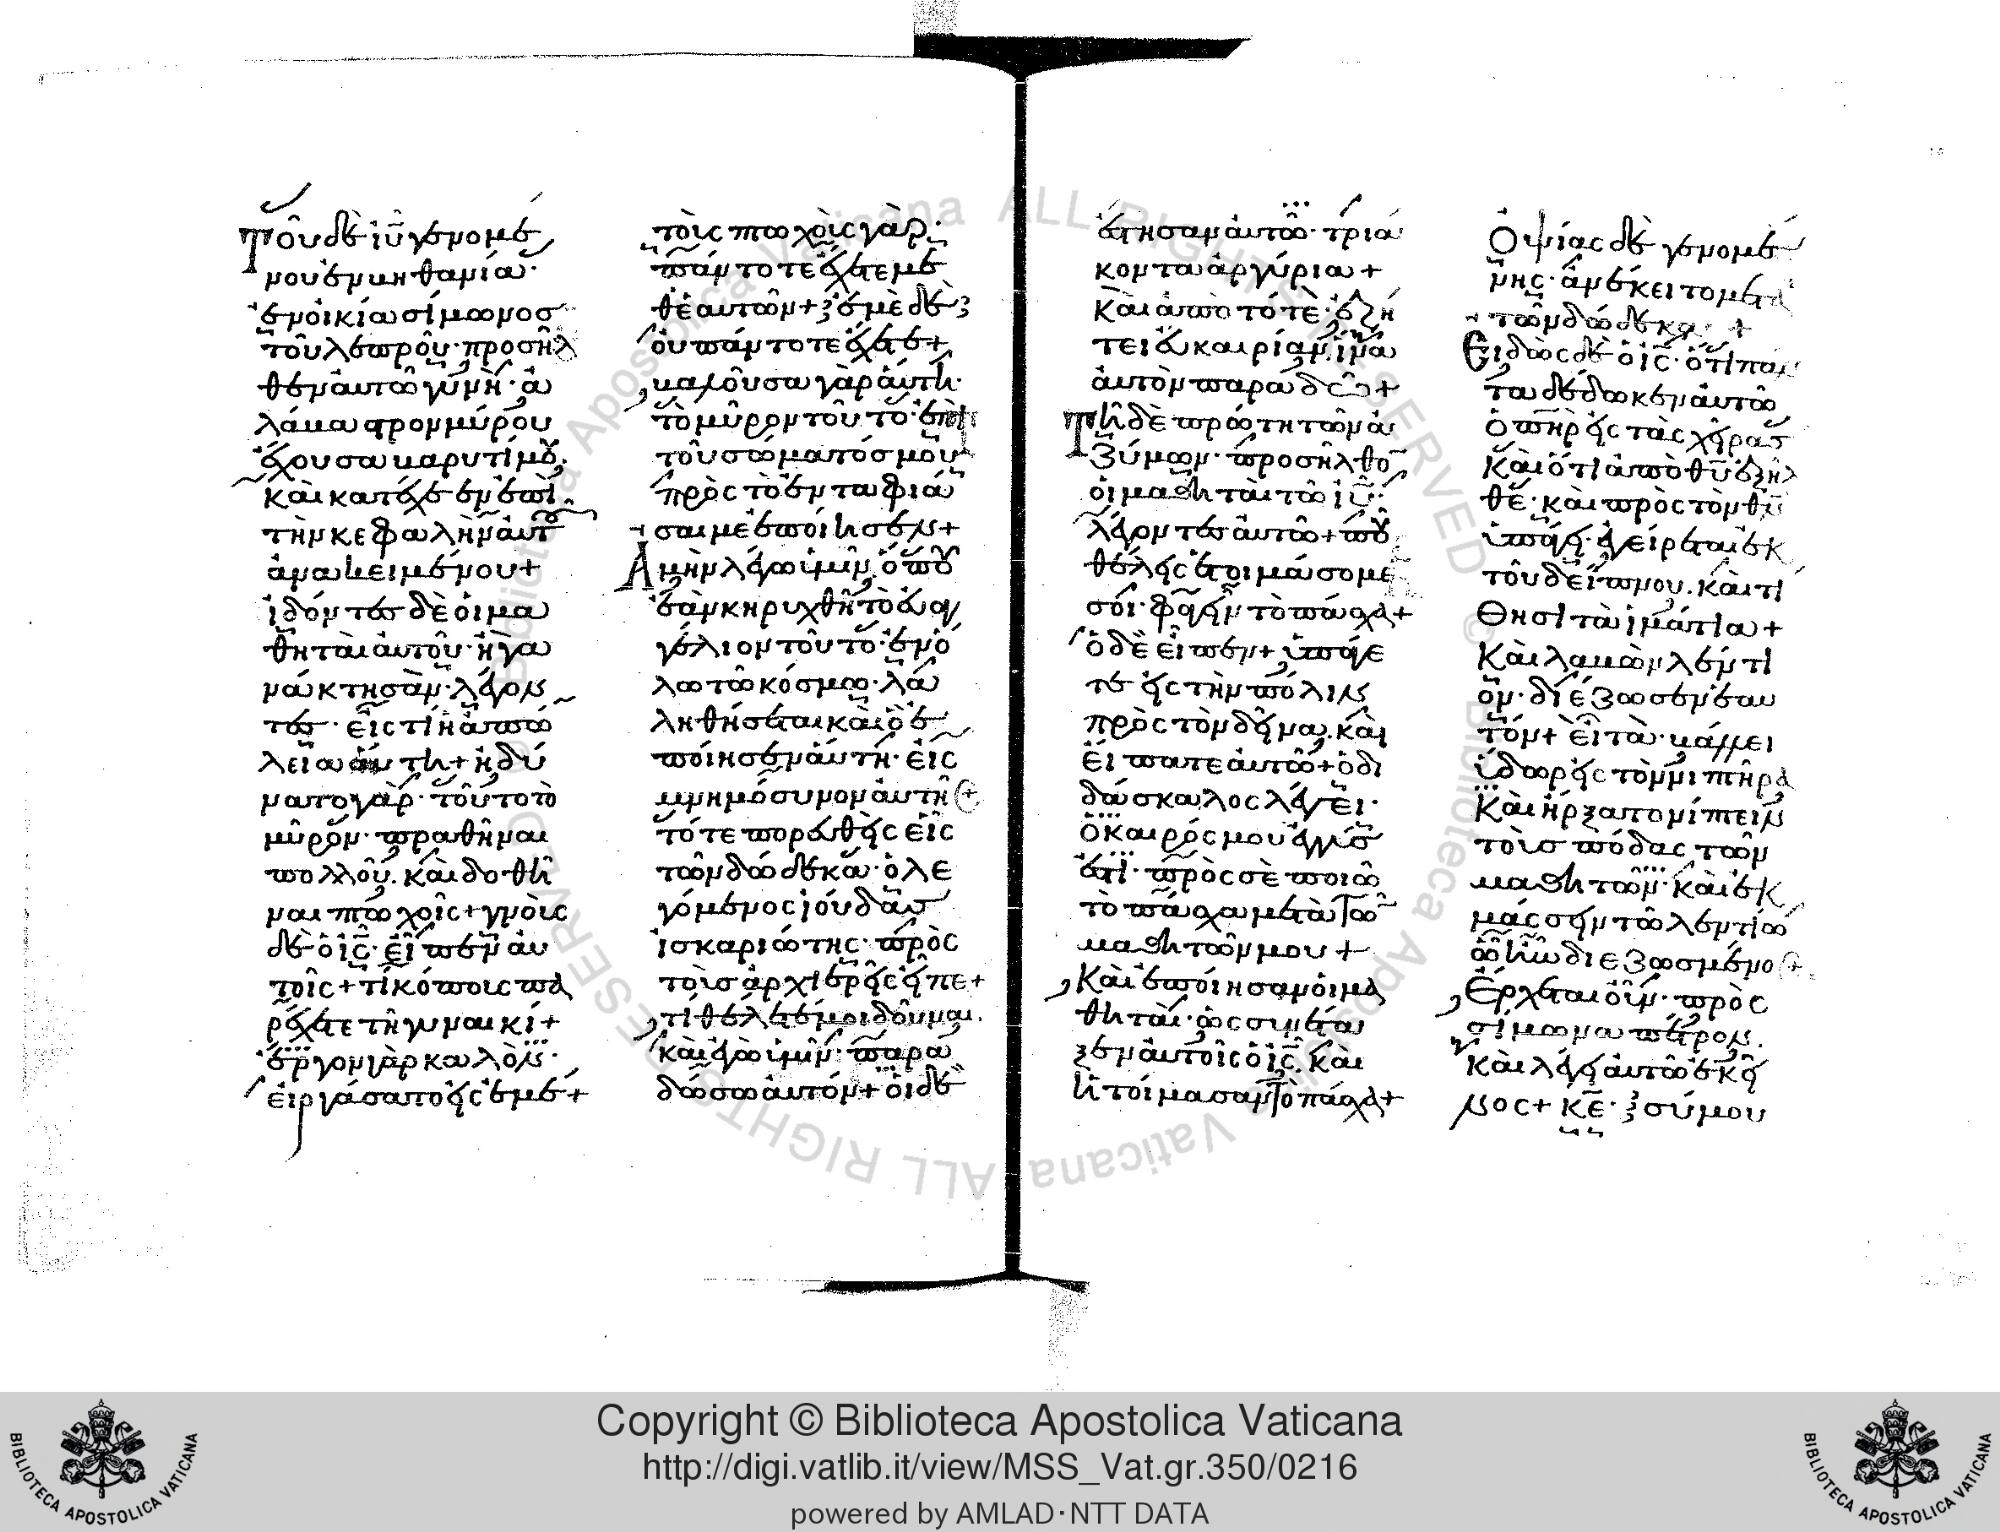 Τοῦ δὲ ἰῦ γενομέ
νου ἐν βηθανία·
ἐν οἰκία σίμωνος
τοῦ λεπροῦ· προσῆλ
θεν αὐτῶ γυνὴ· ἀ
λάβαστρον μύρου
ἔχουσα βαρυτίμου·
καὶ κατέχεεν ἐπὶ
τὴν κεφαλὴν αὐτοῦ
ἀνακειμένου+
ἰδόντες δὲ οἱ μα
θηταὶ αὐτοῦ· ἠγα
νάκτησαν· λέγον
τες· εἰς τί ἡ ἀπώ
λεια αὕτη+ ἠδύ
νατο γὰρ· τοῦτο τὸ
μύρον· πραθῆναι
πολλοῦ· καὶ δοθῆ
ναι πτωχοῖς+ γνοὺς
δὲ ὁ ις· εἶπεν αὐ
τοῖς+ τί κόπους πα
ρέχετε τῆ γυναικί+
ἔργον γὰρ καλὸν·
εἰργάσατο εἰς ἐμέ+
τοὺς πτωχοὺς γὰρ·
πάντοτε ἔχετε με
θ' ἑαυτῶν+ ἐμὲ δὲ
οὐ πάντοτε ἔχετε+
βαλοῦσα γὰρ αὕτη·
τὸ μύρον τοῦτο· ἐπὶ
τοῦ σώματός μου
πρὸς τὸ ἐνταφιά
σαι με ἐποίησεν+
Ἀμὴν λέγω ὑμῖν· ὅπου
ἐὰν κηρυχθῆ τὸ εὐαγ
γέλιον τοῦτο· ἐν ὅ
λω τῶ κόσμω· λα
ληθήσεται καὶ ὃ ἐ
ποίησεν αὕτη· εἰς
μνημόσυνον αὐτῆς+
τότε πορευθεὶς εἷς
τῶν δώδεκα· ὁ λε
γόμενος ἰούδας
ἰσκαριώτης· πρὸς
τοὺς ἀρχιερεῖς εἶπε+
τί θέλετέ μοι δοῦναι·
κἀγὼ ὑμῖν· παρα
δώσω αὐτόν+ οἱ δὲ
ἔστησαν αὐτῶ· τριά
κοντα ἀργύρια+
Καὶ ἀπὸ τότε· ἐζή
τει εὐκαιρίαν· ἵνα
αὐτὸν παραδῶ+
Τῆ δὲ πρώτη τῶν ἀ
ζύμων· προσῆλθον
οἱ μαθηταὶ τῶ ἰῦ·
λέγοντες αὐτῶ+ ποῦ
θέλεις ἑτοιμάσομέν
σοι· φαγεῖν τὸ πάσχα+
ὁ δὲ εἶπεν+ ὑπάγε
τε εἰς τὴν πόλιν
πρὸς τὸν δεῖνα· καὶ
εἴπατε αὐτῶ+ ὁ δι
δάσκαλος λέγει·
ὁ καιρός μου ἐγγύς
ἐστι· πρὸς σὲ ποιῶ
τὸ πάσχα μετὰ τῶν
μαθητῶν μου+
Καὶ ἐποίησαν οἱ μα
θηταὶ· ὡς συνέτα
ξεν αὐτοῖς ὁ ις· καὶ
ἡτοίμασαν τὸ πάσχα+
Ὀψίας δὲ γενομέ
νης· ἀνέκειτο μετὰ
τῶν δώδεκα+
Εἰδὼς δὲ ὁ ις· ὅτι πάν
τα δέδωκεν αὐτῶ
ὁ πηρ εἰς τὰς χεῖρας
Καὶ ὅτι ἀπὸ θυ ἐξῆλ
θε· καὶ πρὸς τὸν θν
ὑπάγει· ἐγείρεται ἐκ
τοῦ δείπνου· καὶ τί
θησι τὰ ἱμάτια+
Καὶ λαβὼν λέντι
ον· διέζωσεν ἑαυ
τόν+ εἶτα· βάλλει
ὕδωρ εἰς τὸν νιπτῆρα
Καὶ ἤρξατο νίπτειν
τοὺς πόδας τῶν
μαθητῶν· καὶ ἐκ
μάσσειν τῶ λεντίω
ὧ ἦν διεζωσμένος+
Ἔρχεται οὖν· πρὸς
σίμωνα πέτρον·
Καὶ λέγει αὐτῶ ἐκεῖ
νος+ κε· σύ μου